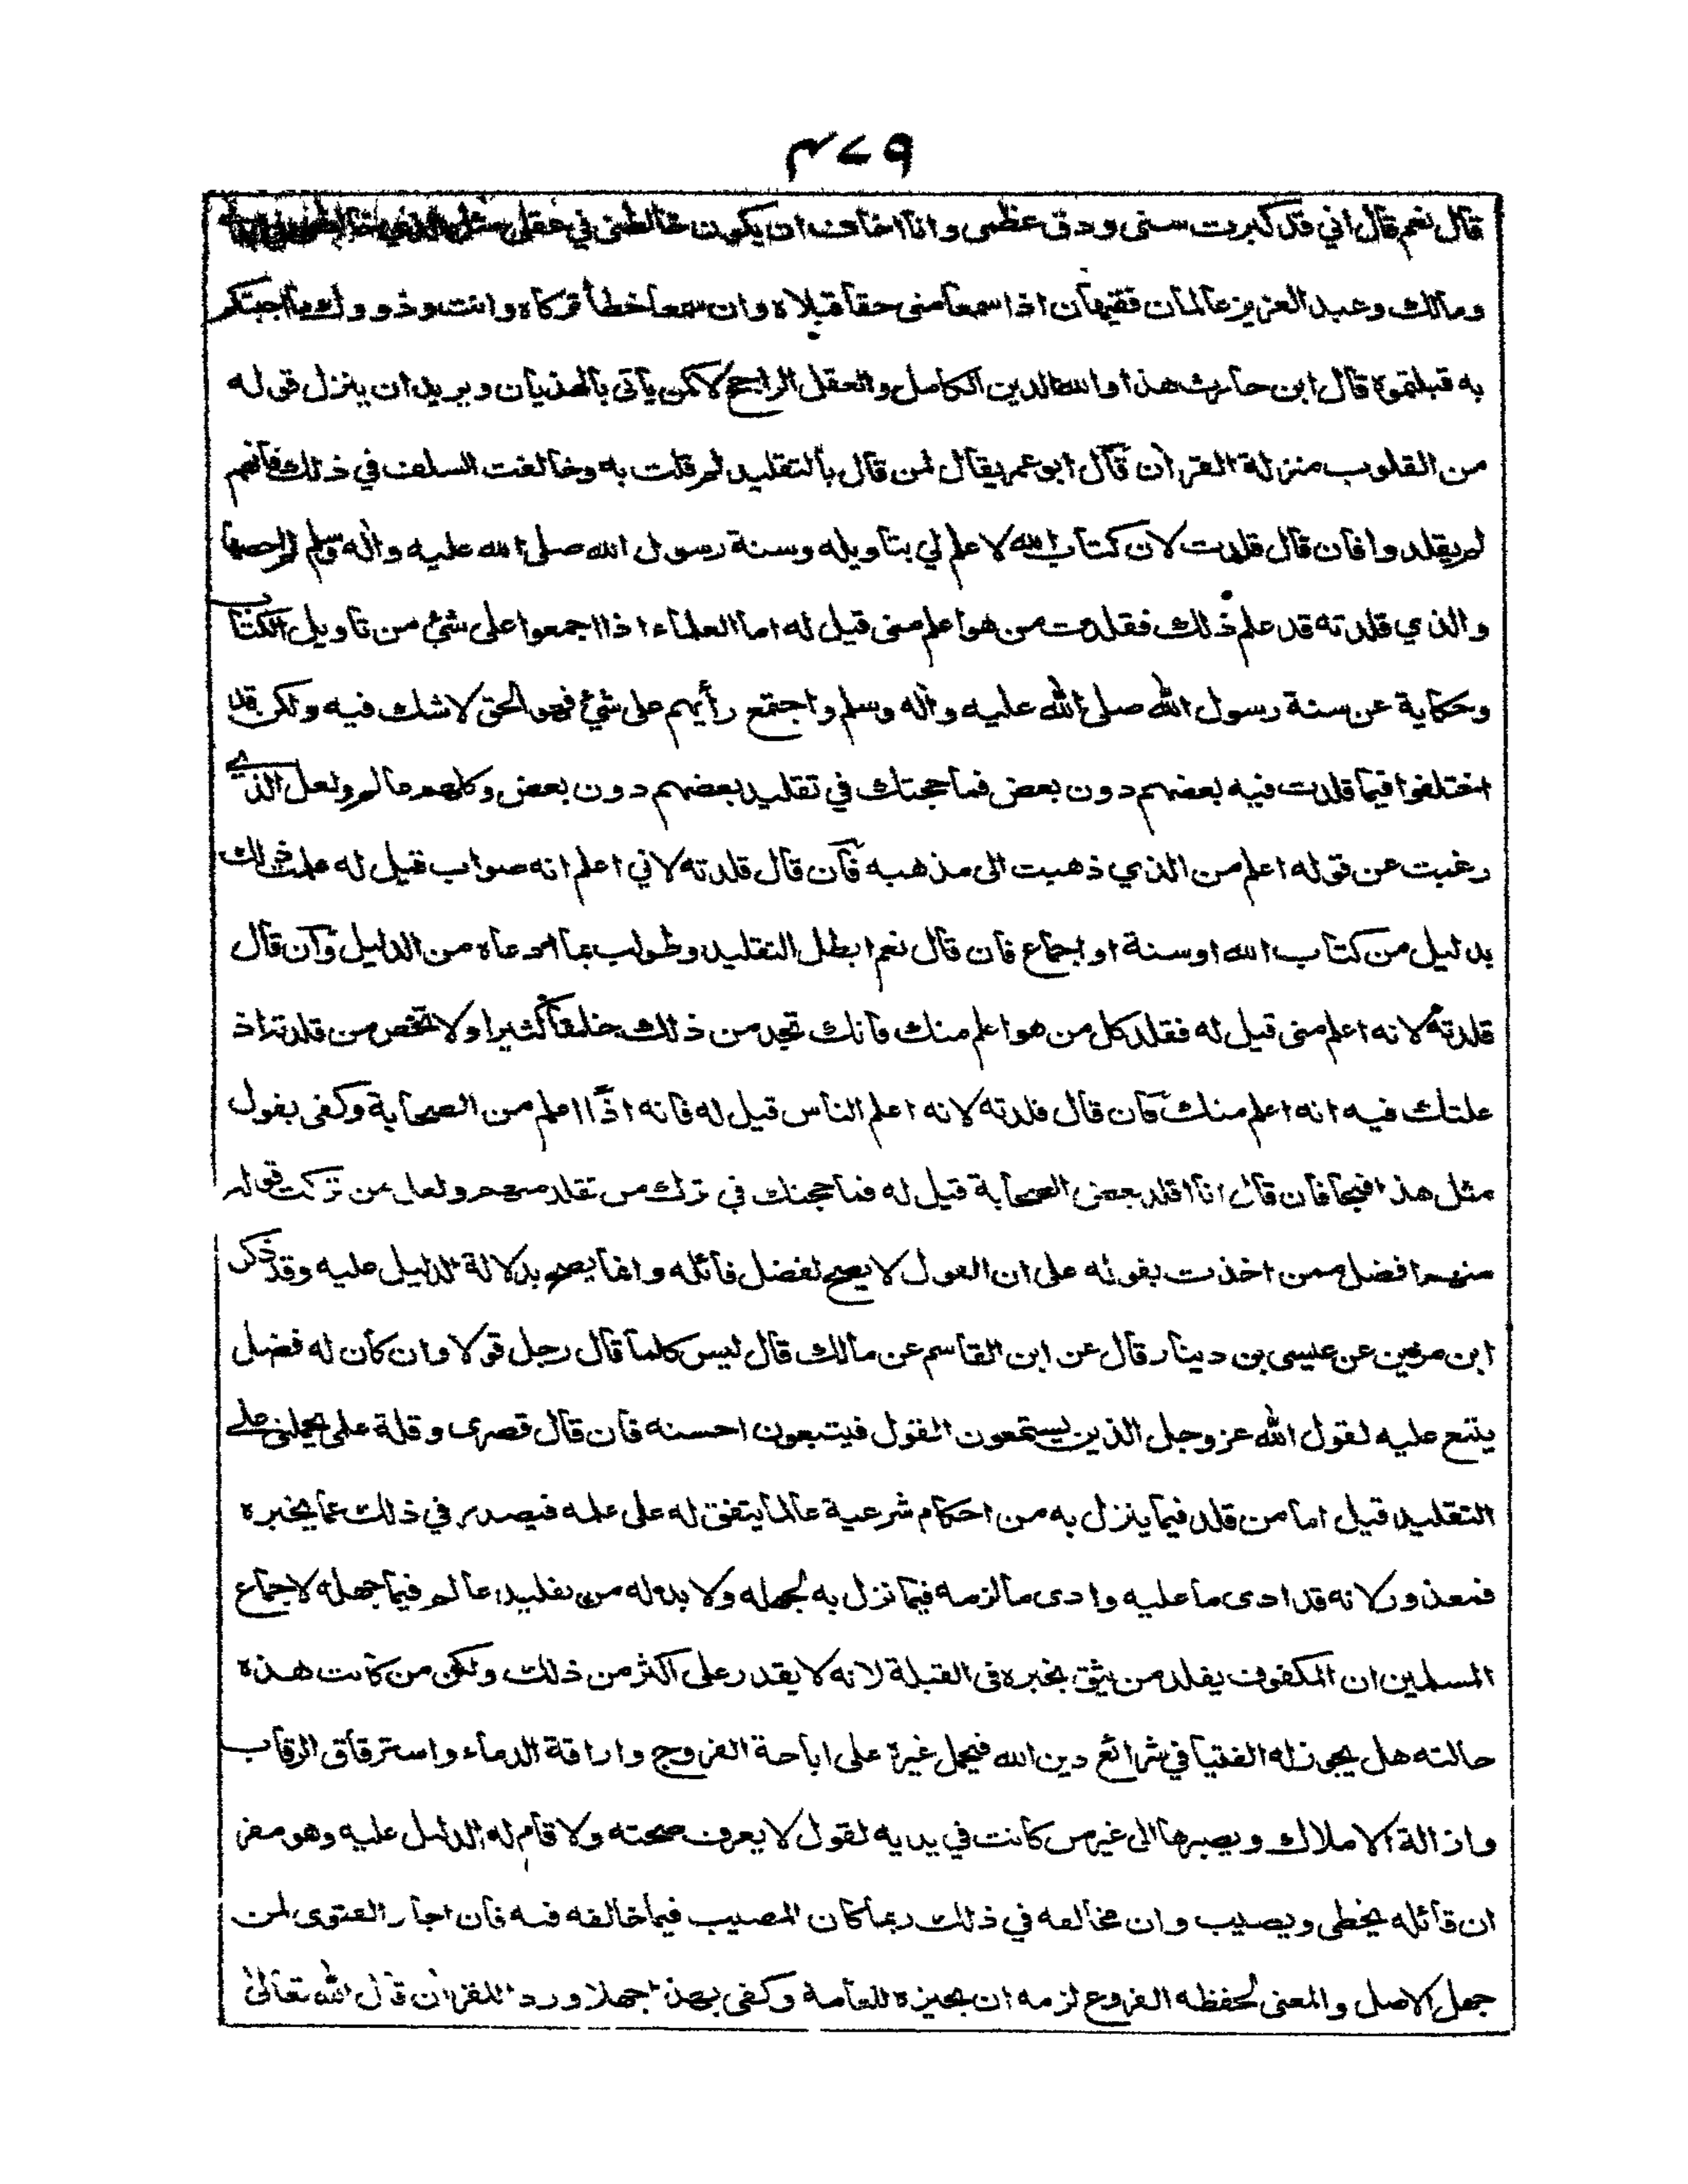 ۴۷۹
قال نعم قال اني قد كبرت سنى ودق عظمى وانا اخاف ان يكون خالطنى في عقلى مثل الذي
ومالك وعبد العزيز عالمان فقيهان اذا سمعا منى حقا قبلاه وان سمعا خطأ تركاه وانت وذووك ما اجبتكم
به قبلتموه قال ابن حارث هذا والله الدين الكامل والعقل الراجح لا كمن يأتى بالهذيان ويريد ان ينزل قوله
من القلوب منزلة القرأن قال ابو عمر يقال لمن قال بالتقليد لم قلت به وخالفت السلف في ذلك فانهم
لم يقلدوا فان قال قلدت لان كتاب الله لا علم لي بتاويله وسنة رسول الله صلى الله عليه واله وسلم لم احصها
والذي قلدته قد علم ذلك فقلدت من هو اعلم منى قيل له اما العلماء اذا اجمعوا على شئ من تاويل الكتاب
وحكاية عن سنة رسول الله صلى الله عليه وأله وسلم واجتمع رأيهم على شئ فهو الحق لا شك فيه ولكن قد
اختلفوا فيما قلدت فيه بعضهم دون بعض فما حجتك في تقليد بعضهم دون بعض وكلهم عالم ولعل الذي
رغبت عن قوله اعلم من الذي ذهبت الى مذهبه فان قال قلدته لاني اعلم انه صواب قيل له علمت ذلك
بدليل من كتاب الله او سنة او اجماع فان قال نعم ابطل التقليد وطولب بما ادعاه من الدليل وان قال
قلدته لانه اعلم منى قيل له فقلد كل من هو اعلم منك فانك تجد من ذلك خلقا كثيرا ولا تخص من قلدته اذ
علتك فيه انه اعلم منك فان قال قلدته لانه اعلم الناس قيل له فانه اذًا اعلم من الصحابة وكفى بقول
مثل هذا قبيحا فان قال انا اقلد بعض الصحابة قيل له فما حجتك في ترك من تقلد منهم ولعل من تركت قوله
منهم افضل ممن اخذت بقوله على ان القول لا يصح لفضل قائله وانما يصح بدلالة الدليل عليه وقد ذكر
ابن مزين عن عيسى بن دينار قال عن ابن القاسم عن مالك قال ليس كلما قال رجل قولا وان كان له فضل
يتبع عليه لقول الله عز وجل الذين يستمعون القول فيتبعون احسنه فان قال قصرى وقلة على يحملنى على
التقليد قيل اما من قلد فيما ينزل به من احكام شرعية عالما يتفق له على علمه فيصدر في ذلك عما يخبره
فمعذور لانه قد ادى ما عليه وادى ما لزمه فيما نزل به لجهله ولا بد له من تقليد عالم فيما جهله لاجماع
المسلمين ان المكفوف يقلد من يثق بخبره فى القبلة لانه لا يقدر على اكثر من ذلك ولكن من كانت هذه
حالته هل يجوز له الفتيا في شرائع دين الله فيحمل غيره على اباحة الفروج واراقة الدماء واسترقاق الرقاب
وازالة الاملاك ويصيرها الى غير من كانت في يديه لقول لا يعرف صحته ولا قام له الدليل عليه وهو مقر
ان قائله يخطى ويصيب وان مخالفه في ذلك ربما كان المصيب فيما خالفه فيه فان اجاز الفتوى لمن
جهل الاصل والمعنى لحفظه الفروع لزمه ان يجيزه للعامة وكفى بهذا جهلا وردا للقرأن قال الله تعالى